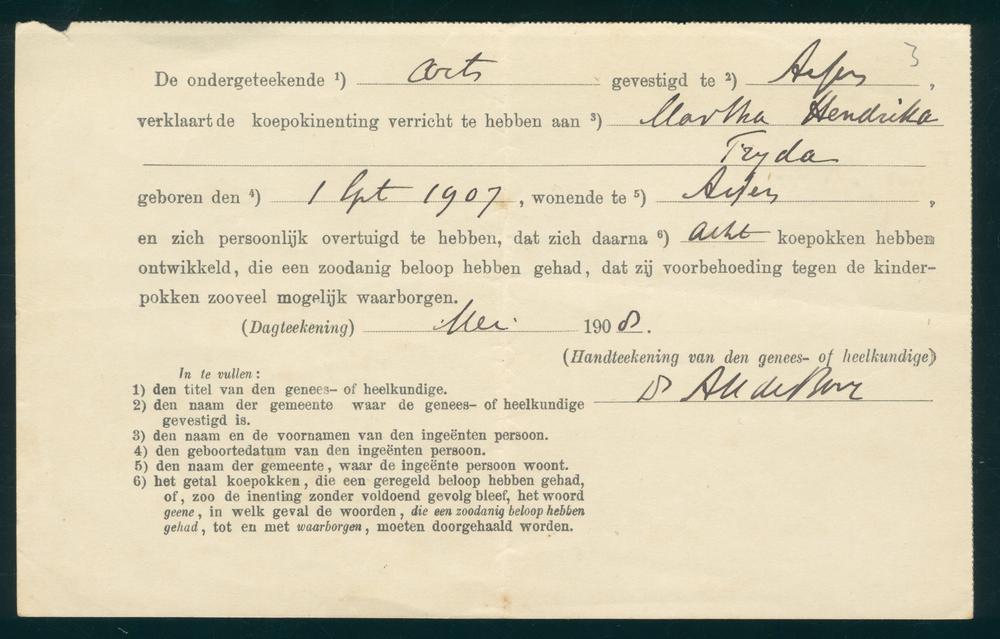 3
De ondergeteekende 1) arts gevestigd te 2) ,
verklaart de koepokinenting verricht te hebben aan 3) Martha Hendrika
Tryda
geboren den 4) 1 Spt 1907 , wonende te 5) ,
en zich persoonlijk overtuigd te hebben, dat zich daarna 6) acht koepokken hebben
ontwikkeld, die een zoodanig beloop hebben gehad, dat zij voorbehoeding tegen de kinder-
pokken zooveel mogelijk waarborgen.
(Dagteekening) Mei 1908.
(Handteekening van den genees- of heelkundige)
Dr
In te vullen:
1) den titel van den genees- of heelkundige.
2) den naam der gemeente waar de genees- of heelkundige
gevestigd is.
3) den naam en de voornamen van den ingeënten persoon.
4) den geboortedatum van den ingeënten persoon.
5) den naam der gemeente, waar de ingeënte persoon woont.
6) het getal koepokken, die een geregeld beloop hebben gehad,
of, zoo de inenting zonder voldoend gevolg bleef, het woord
geene, in welk geval de woorden, die een zoodanig beloop hebben
gehad, tot en met waarborgen, moeten doorgehaald worden.